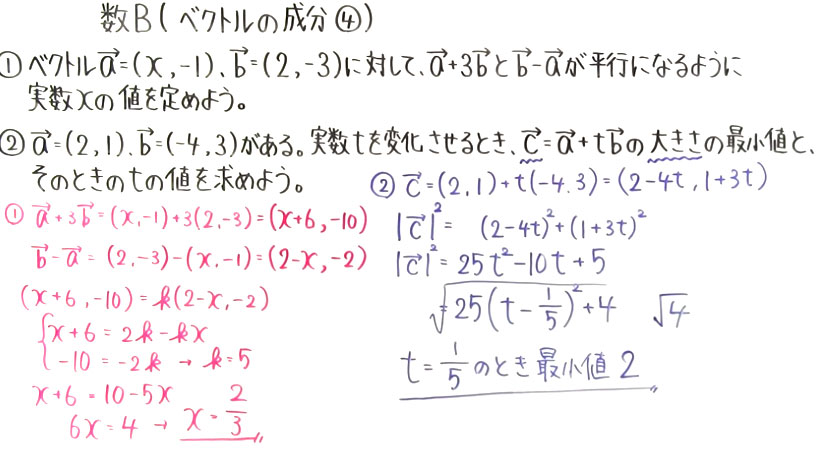 数B(ベクトルの成分④)
①ベクトルa→=(x,-1)、b→=(2,-3)に対して、a→+3b→とb→-a→が平行になるように
実数xの値を定めよう。
②a→=(2,1)、b→=(-4,3)がある。実数tを変化させるとき、c→=a→+tb→の大きさの最小値と、
そのときのtの値を求めよう。
①a→+3b→=(x,-1)+3(2,-3)=(x+6,-10)
b→-a→=(2,-3)-(x,-1)=(2-x,-2)
(x+6,-10)=k(2-x,-2)
{x+6=2k-kx
-10=-2k→k=5
x+6=10-5x
6x=4→x=2/3
②c→=(2,1)+t(-4.3)=(2-4t,1+3t)
|c→|²=(2-4t)²+(1+3t)²
|c→|²=25t²-10t+5
√25(t-1/5)²+4 √4
t=1/5のとき最小値2